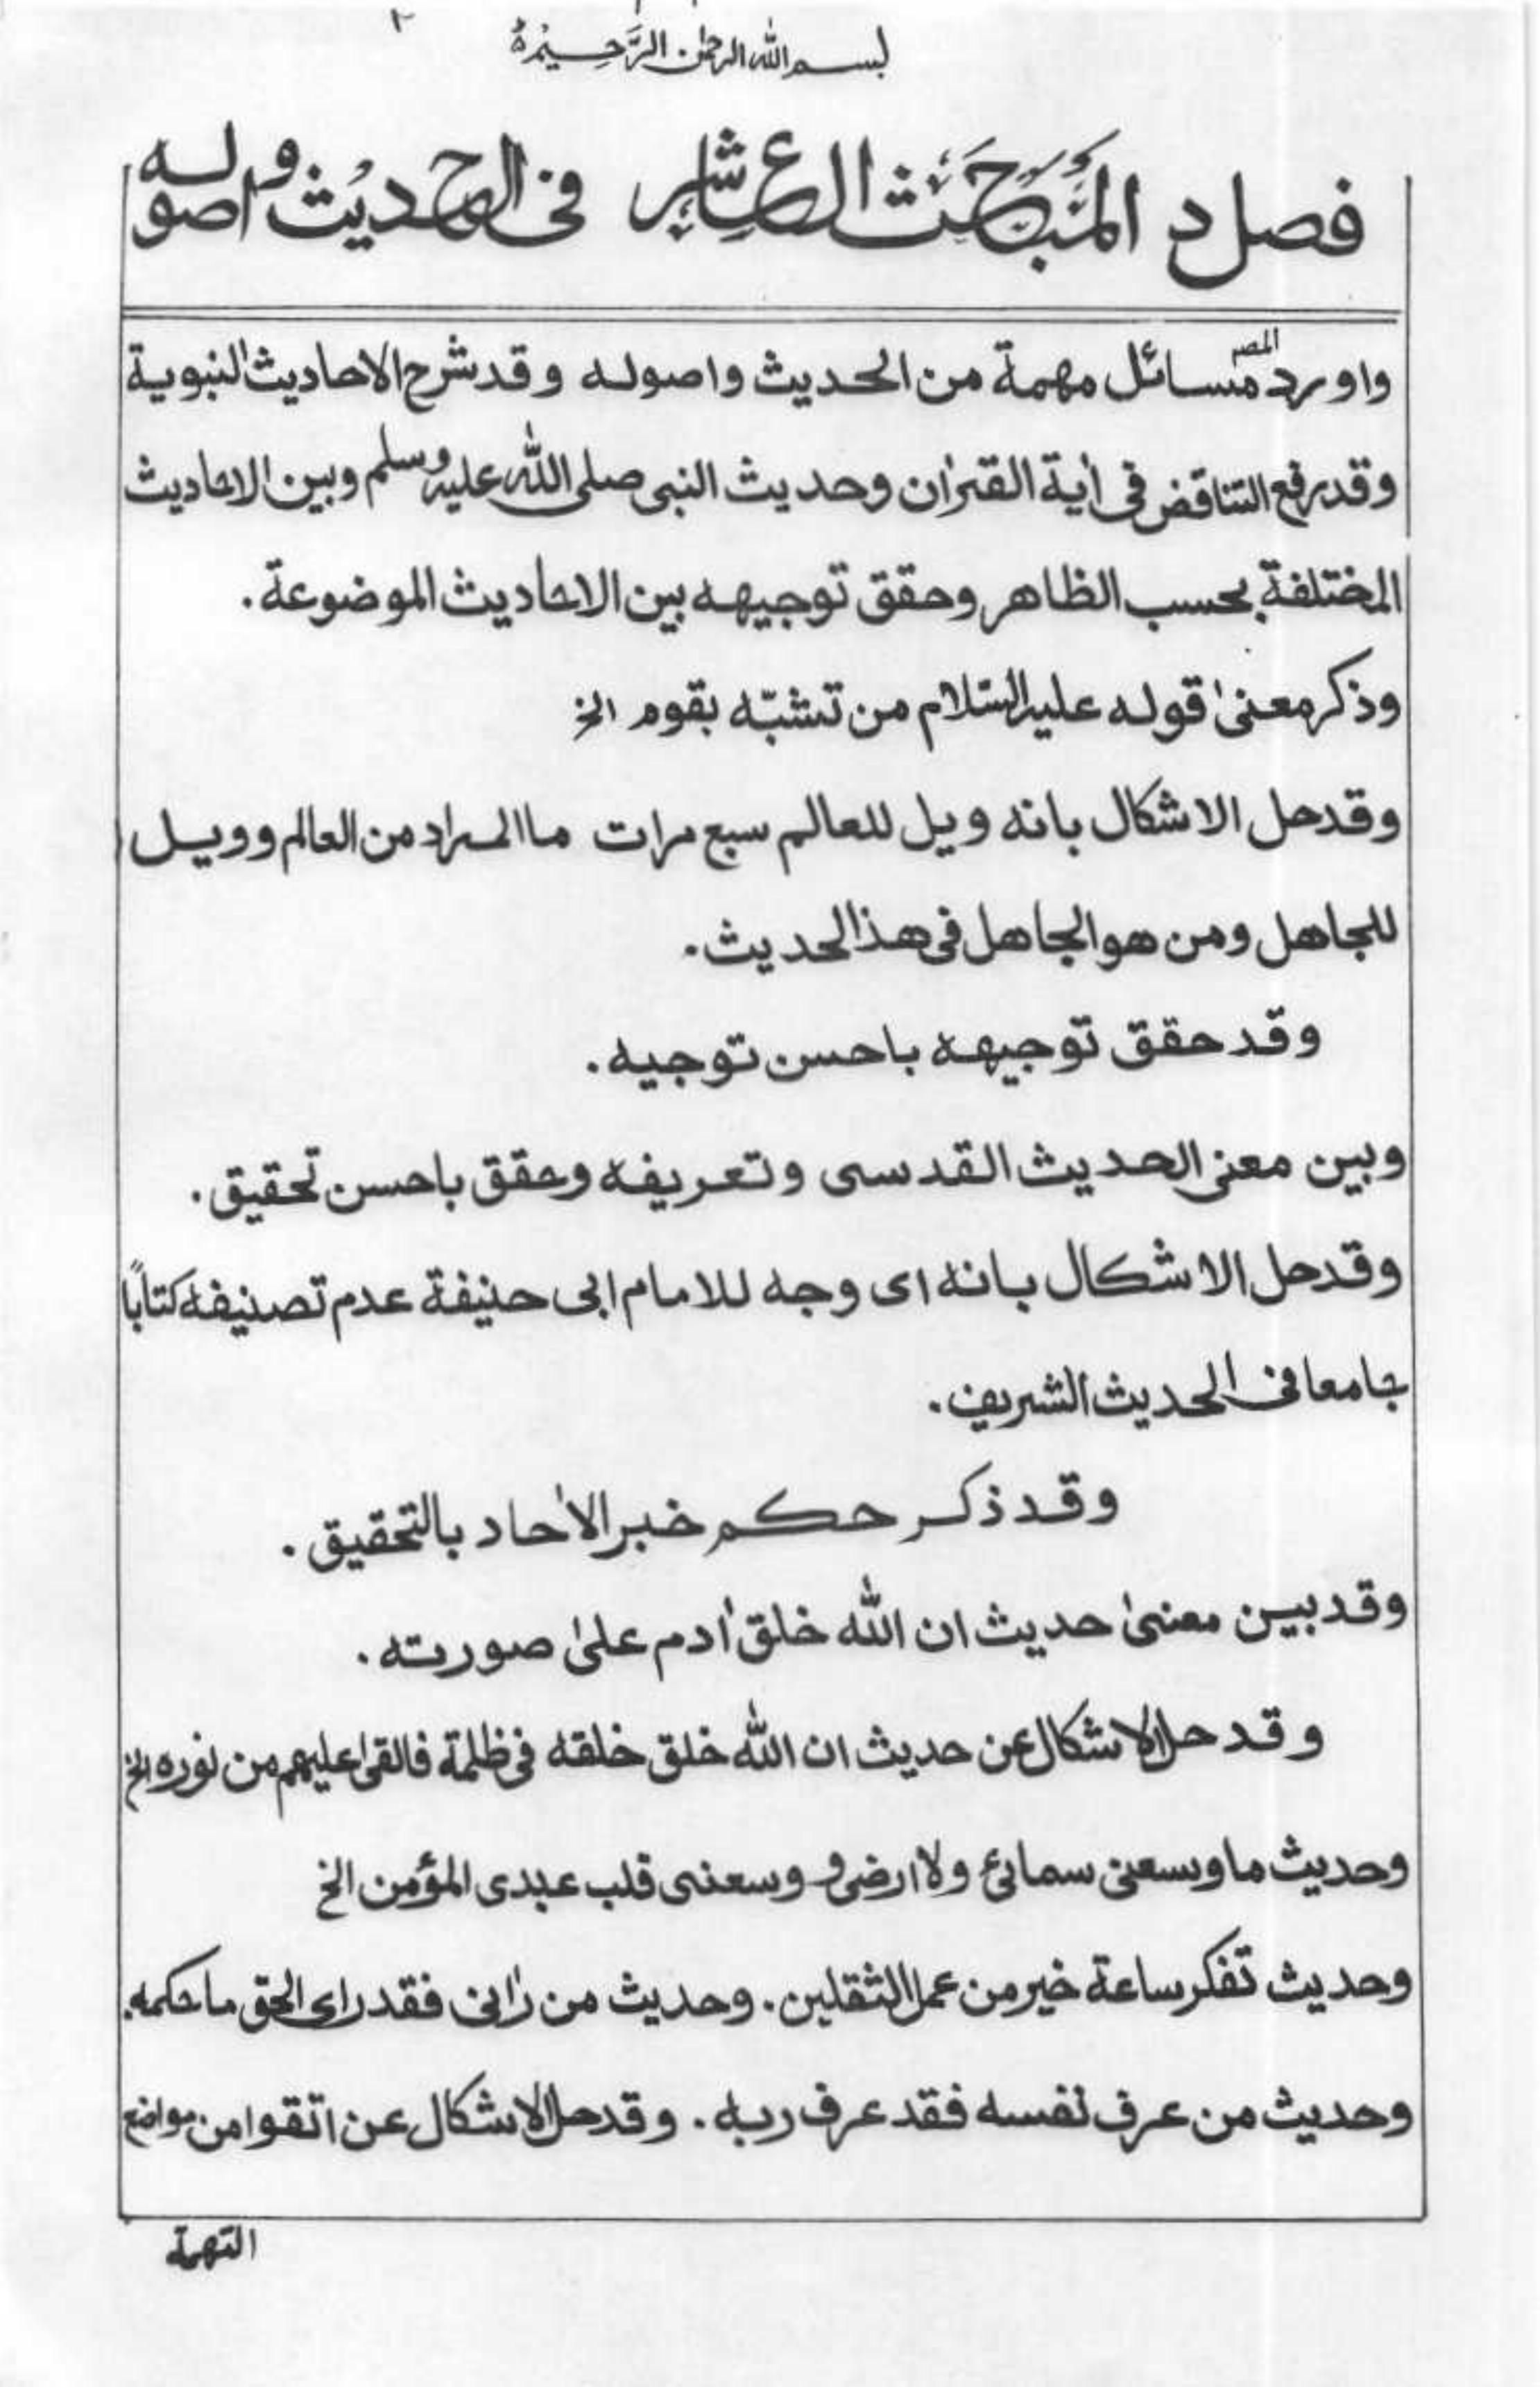 ٢
بسم الله الرحمن الرَّحِيْمِ
فصل د المَبَحَثُ العاشِر فى الحديث واصوله
واورد المصـ مسائل مهمة من الحديث واصوله وقد شرح الاحاديث النبوية
وقد رفع التناقض فى أية القرأن وحديث النبى صلى الله عليه وسلم وبين الاحاديث
المختلفة بحسب الظاهر وحقق توجيهه بين الاحاديث الموضوعة.
وذكر معنىٰ قوله عليه السّلام من تشبّه بقوم الخ
وقد حل الاشكال بانه ويل للعالم سبع مرات ما المراد من العالم وويل
للجاهل ومن هو الجاهل فى هذا الحديث.
وقد حقق توجيهه باحسن توجيه.
وبين معنى الحديث القدسى وتعريفه وحقق باحسن تحقيق.
وقد حل الاشكال بانه اى وجه للامام ابى حنيفة عدم تصنيفه كتابًا
جامعا فى الحديث الشريف.
وقد ذكر حكم خبر الأحاد بالتحقيق.
وقد بين معنىٰ حديث ان الله خلق أدم علىٰ صورته.
وقد حل الاشكال عن حديث ان الله خلق خلقه فى ظلمة فالقى عليهم من نوره الخ
وحديث ما وسعنى سمائى ولا ارضى و وسعنى قلب عبدى المؤمن الخ
وحديث تفكر ساعة خير من عمل الثقلين. وحديث من رأنى فقد راى الحق ما حكمه.
وحديث من عرف نفسه فقد عرف ربه. وقد حل الاشكال عن اتقوا من مواضع
التهمة